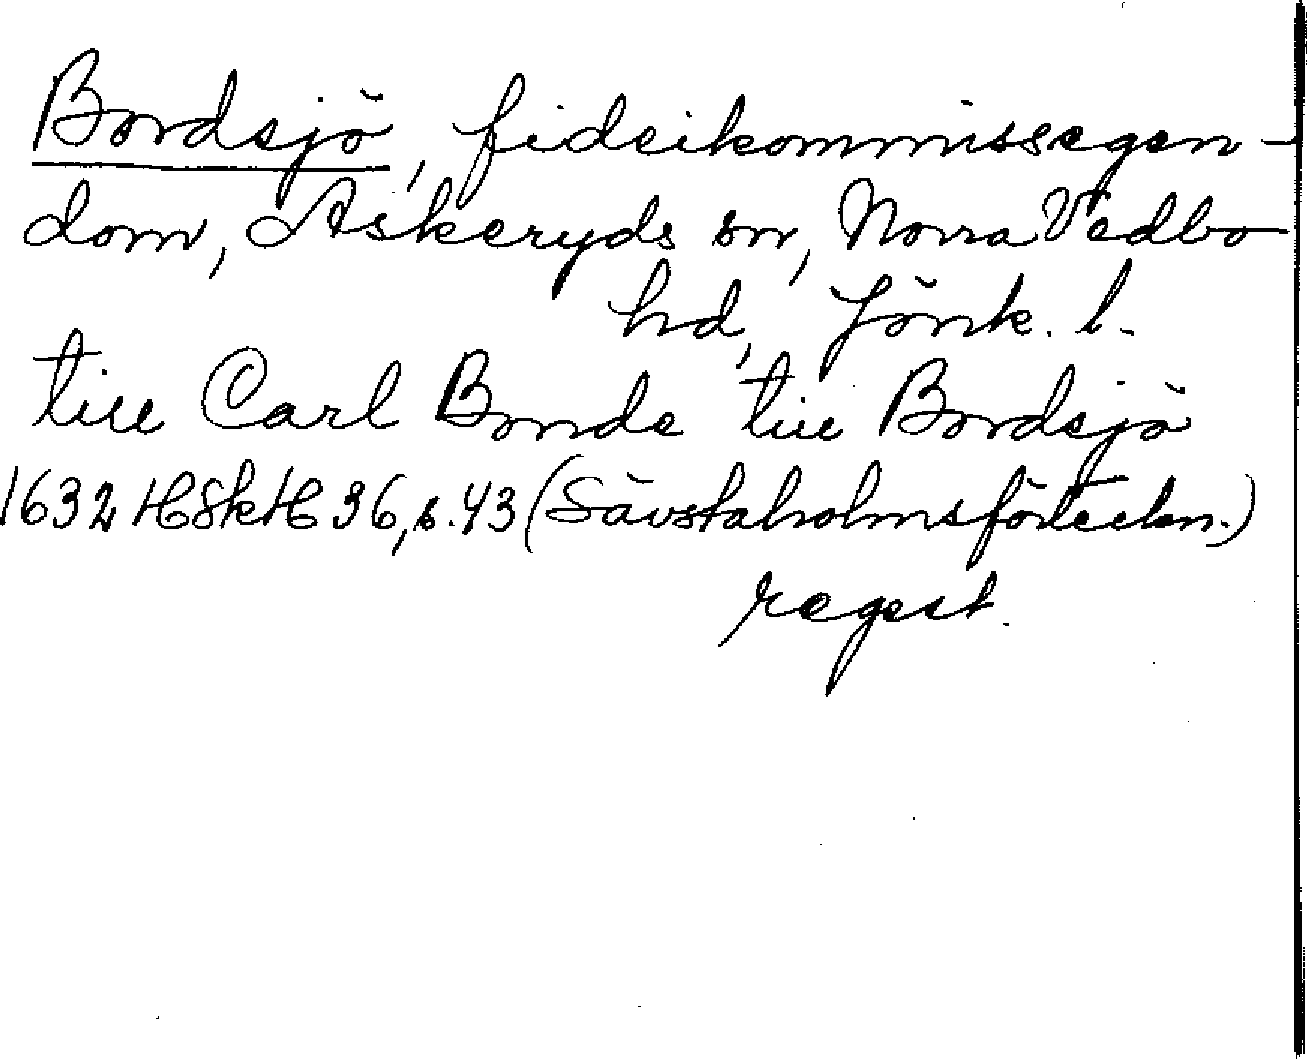 Bordsjö, fideikommissegen-
dom, Askeryds sn, Norra Vedbo
hd, Jönk. l.
till Carl Bonde till Bordsjö
1632 HSkH 36, s. 43 (Sävstaholmsförteckn.)
regest.